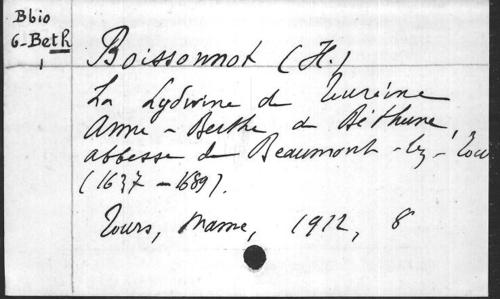 Bbio
6-Beth
1
Boissonnot (H.)
La Lydwine de Touraine
Anne-Berthe de Béthune,
abbesse de Beaumont-lez-Tou
(1637-1689).
Tours, Mame, 1912, 8